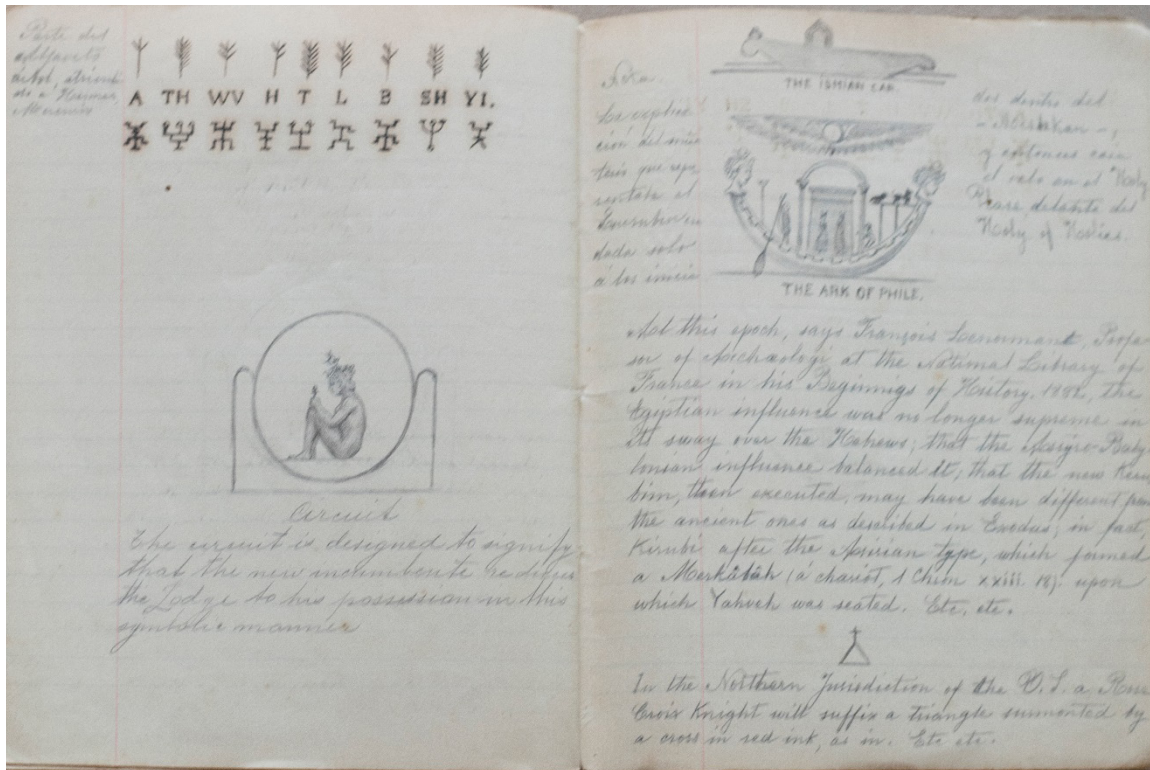 Parte del
alfabeto
árbol, atribui
do a Hermes
A TH WV H T L B SH YI.
Circuit
The circuit is designed to signify
that the new incumbente rediques
the Lodge to his possession in this
symbolic manner
THE ISMIAN EAR.
Nota.
La explica
ción del mis
terio que repre
sentaba el
Querubin era
dada solo
á los inicia
dos dentro del
- Mishkan -,
y entonces caia
el velo en el "Holy
Place delante del
Holy of Holies.
THE ARK OF PHILE.
At this epoch, says François Lenormant, Profe-
sor of Archæology at the National Library of
France in his Beginnigs of History. 1882, the
Egiptian influence was no longer supreme in
its sway over the Hebrews; that the Assyro-Baby-
lonian influence balanced it; that the new Keru
bim, then executed, may have been different from
the ancient ones as described in Exodus; in fact,
Kirubi after the Assirian type, which formed
a Merkâbâh (a chariot, 1 Chim XXIII. 18). upon
which Yahveh was seated. Etc, etc.
In the Northern Jurisdiction of the U. S. a Rose
Croix Knight will suffix a triangle surmonted by
a cross in red ink, as in. Etc etc.